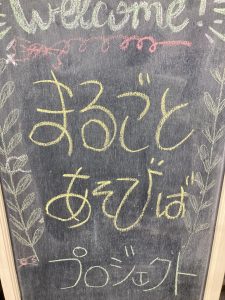 Welcome!
まるごと
あそびば
プロジェクト